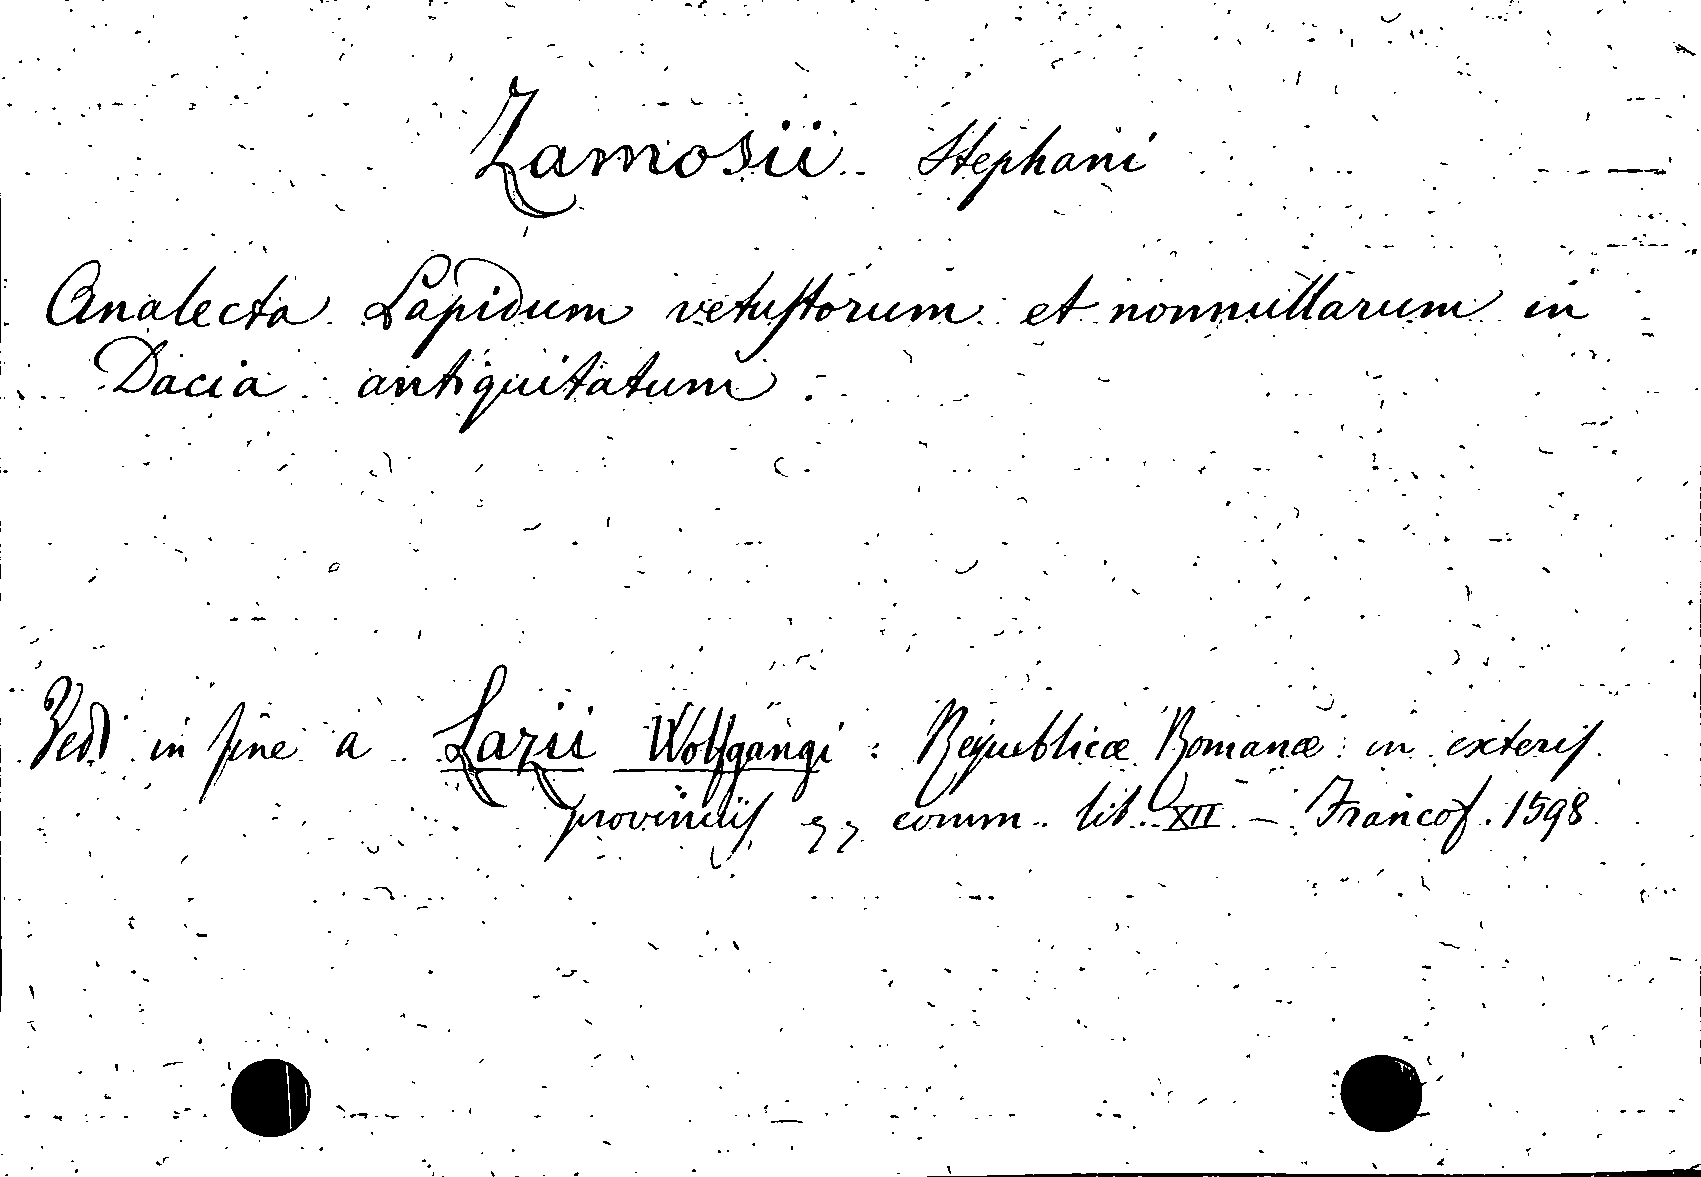 Zamosii Stephani
Analecta Lapidum vetustorum et nonnullarum in
Dacia antiquitatum
Vedi in fine a Lazii Wolfgangi: Republicæ Romanæ in exteris
provinciis comm. lib. XII — Francof. 1598